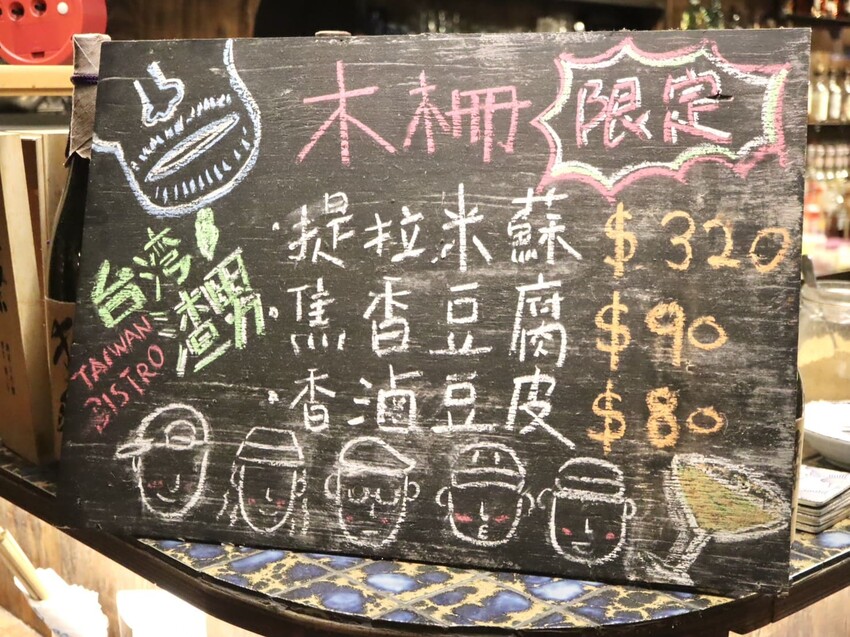 木柵 限定
提拉米蘇 $320
焦香豆腐 $90
香滷豆皮 $80
台湾
渣男
TAIWAN
BISTRO